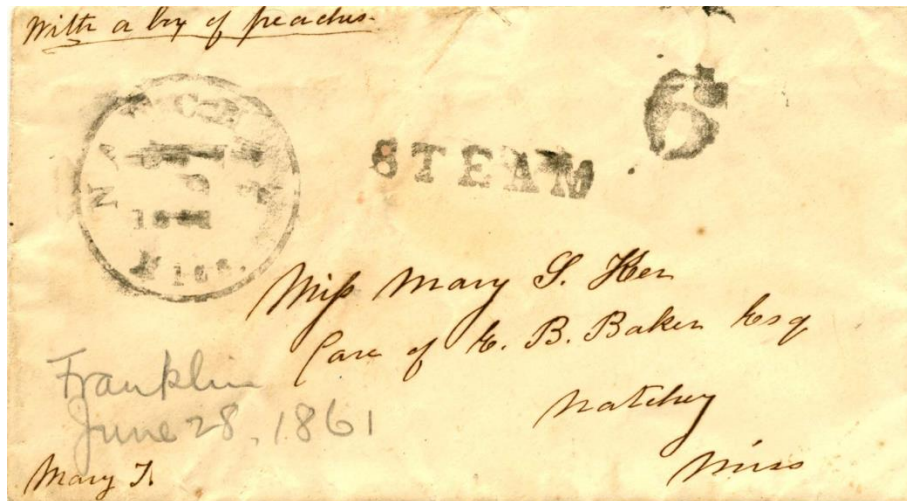 With a box of peaches.
NATCHEZ
Miss.
STEAM
6
Miss Mary S. Ker
Care of E. B. Baker Esq
Natchez
Miss
Franklin
June 28, 1861
Mary